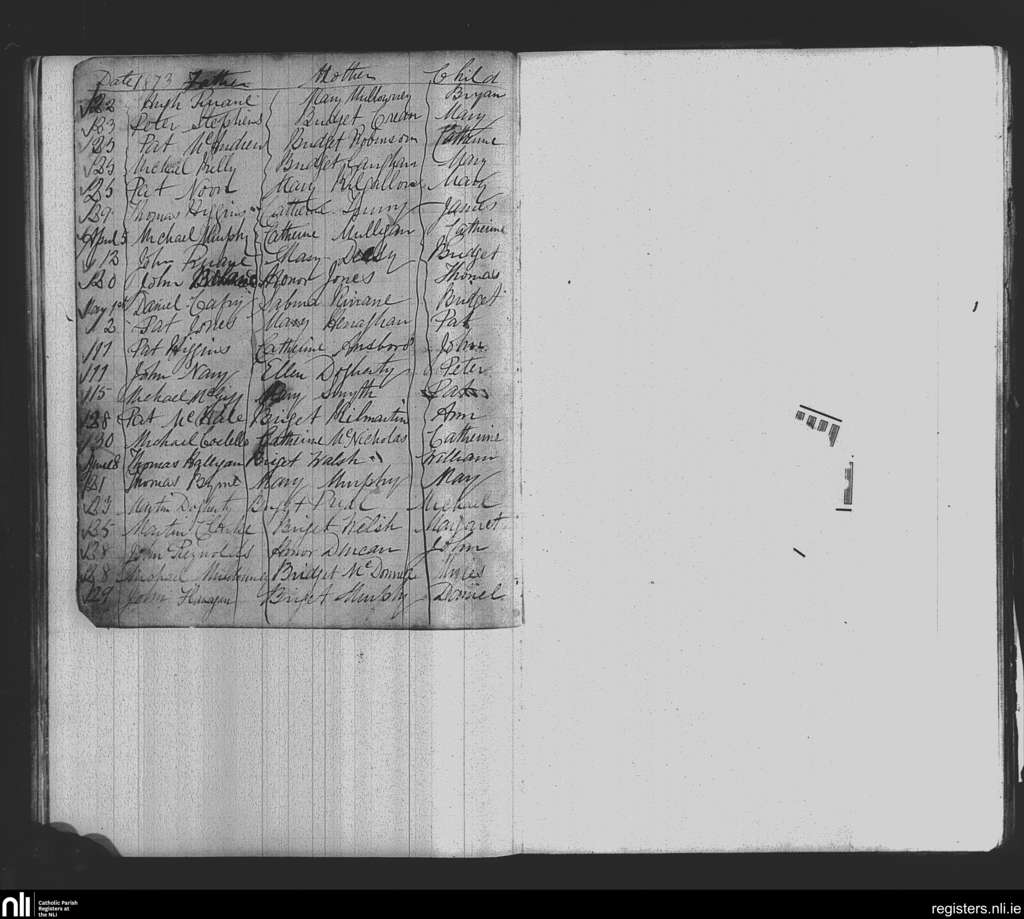 Date 1873 Father Mother Child
22 Hugh Ruane Mary Mullowney Bryan
23 Peter Stephens Bridget Crean Mary
25 Pat McAndrew Bridget Robinson Catherine
25 Micheal Kelly Bridget Mary
25 Pat Noon Mary Kilgallon Mary
29 Thomas Higgins James
April 5 Michael Murphy Catherine Mulligan Catherine
12 John Ruane Mary Bridget
20 John Honor Jones Thomas
May 1st Daniel Sabina Bridget
2 Pat Jones Henaghan Pat
11 Pat Higgins Catherine John
11 John Nary Ellen Dogherty Peter
15 Michael Mary Smyth
28 Pat McHale Briget Kilmartin Ann
30 Michael Costello Catherine McNicholas Catherine
June 8 Thomas Halligan Briget Walsh William
21 Thomas Byrne Mary Murphy May
23 Martin Dogherty Michael
25 Martin Briget Welsh Margaret
28 John Reynolds Honor Duncan John
28 Michael Bridget McDonnell
29 John Briget Murphy Daniel
nli Catholic Parish
Registers at
the NLI
registers.nli.ie